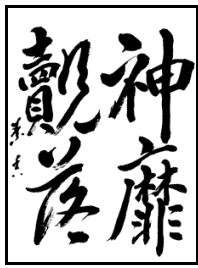 神靡
覿落